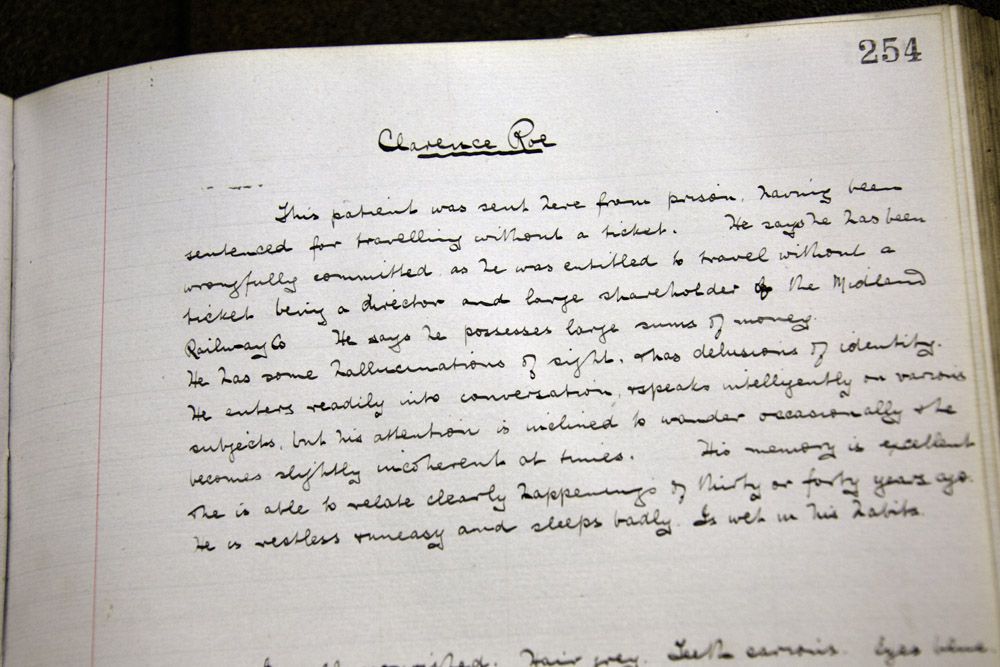 254
Clarence Roe
This patient was sent here from prison, having been
sentenced for travelling without a ticket. He says he has been
wrongfully committed as he was entitled to travel without a
ticket being a director and large shareholder of the Midland
Railway Co He says he possesses large sums of money.
He has some hallucinations of sight, & has delusions of identity.
He enters readily into conversation, & speaks intelligently on various
subjects, but his attention is inclined to wander occasionally & he
becomes slightly incoherent at times. His memory is excellent
& he is able to relate clearly happenings of thirty or forty years ago.
He is restless & uneasy and sleeps badly. Is wet in his habits.
Hair grey. Teeth carious. Eyes blue